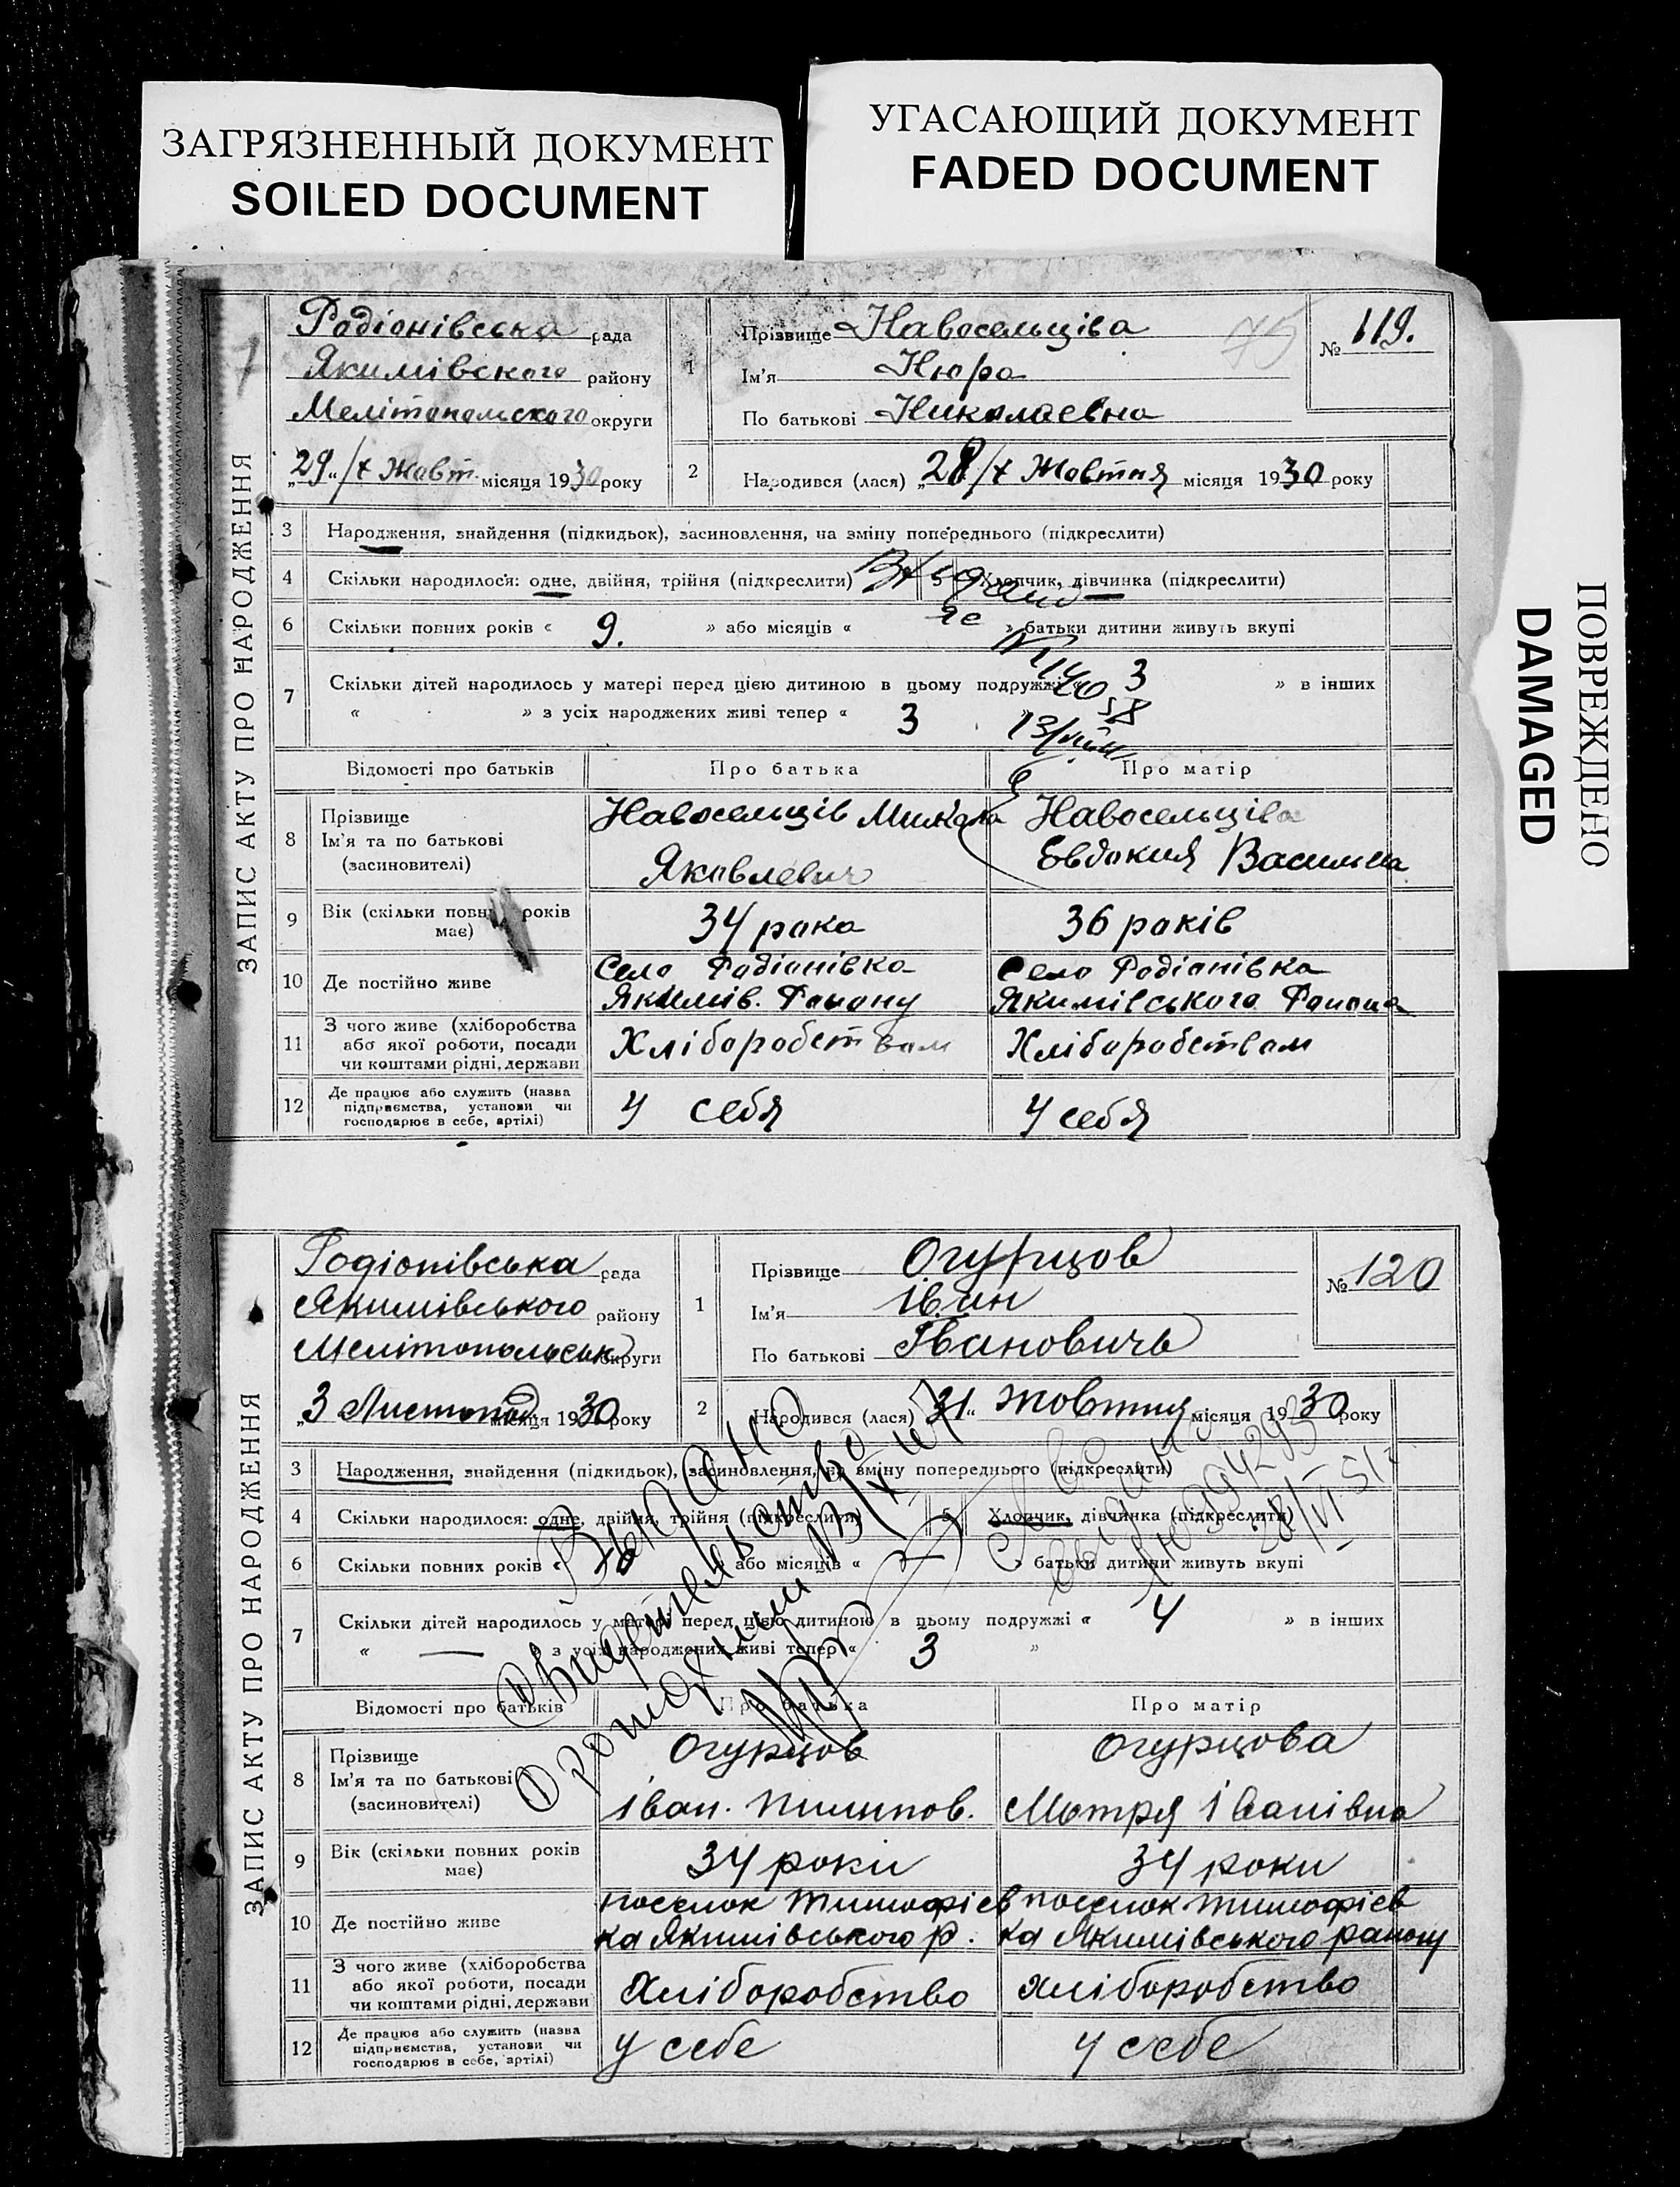 ЗАГРЯЗНЕННЫЙ ДОКУМЕНТ
SOILED DOCUMENT
УГАСАЮЩИЙ ДОКУМЕНТ
FADED DOCUMENT
ПОВРЕЖДЕНО
DAMAGED
ЗАПИС АКТУ ПРО НАРОДЖЕННЯ
Родіонівська рада
Якимівского району
Мелітопольского округи
„29“/X Жовт. місяця 1930 року
1
Прізвище Навосельціва
Ім'я Нюра
По батькові Николаевна
75
№ 119.
2 Народився (лася) „28/X Жовтня місяця 1930 року
3 Народження, знайдення (підкидьок), засиновлення, на зміну попереднього (підкреслити)
4 Скільки народилося: одне, двійня, трійня (підкреслити) 5 Хлопчик, дівчинка (підкреслити)
6 Скільки повних років « 9. » або місяців « » батьки дитини живуть вкупі
7 Скільки дітей народилось у матері перед цією дитиною в цьому подружжі « 3 » в інших
« » з усіх народжених живі тепер « 3 »
Відомості про батьків Про батька Про матір
8 Прізвище
Ім'я та по батькові
(засиновителі)
Навосельців Микола
Яковлевич
Навосельціва
Евдокия Васильна
9 Вік (скільки повних років
має)
34 рока 36 років
10 Де постійно живе
Село Родіонівка
Якимів. Району
Село Родіонівка
Якимівського Району
11 З чого живе (хліборобства
або якої роботи, посади
чи коштами рідні, держави
Хліборобством Хліборобством
12 Де працює або служить (назва
підприємства, установи чи
господарює в себе, артілі)
у себя у себя
ЗАПИС АКТУ ПРО НАРОДЖЕННЯ
Родіонівська рада
Якимівського району
Мелітопольськ округи
„3 Листопад місяця 1930 року
1
Прізвище Огурцов
Ім'я іван
По батькові Івановичь
№ 120
2 Народився (лася) „31“ жовтня місяця 1930 року
3 Народження, знайдення (підкидьок), засиновлення, на зміну попереднього (підкреслити)
4 Скільки народилося: одне, двійня, трійня (підкреслити) 5 Хлопчик, дівчинка (підкреслити)
6 Скільки повних років « » або місяців « » батьки дитини живуть вкупі
7 Скільки дітей народилось у матері перед цією дитиною в цьому подружжі « 4 » в інших
« — » з усіх народжених живі тепер « 3 »
Выдано
Свидетельство
о рождении
Відомості про батьків Про батька Про матір
8 Прізвище
Ім'я та по батькові
(засиновителі)
Огурцов
іван. Пилипов.
Огурцова
Мотря іванівна
9 Вік (скільки повних років
має)
34 роки 34 роки
10 Де постійно живе
поселок Тимофіев
ка Якимівського р.
поселок Тимофіев
ка Якимівського району
11 З чого живе (хліборобства
або якої роботи, посади
чи коштами рідні, держави
Хліборобство Хліборобство
12 Де працює або служить (назва
підприємства, установи чи
господарює в себе, артілі)
у себе у себе